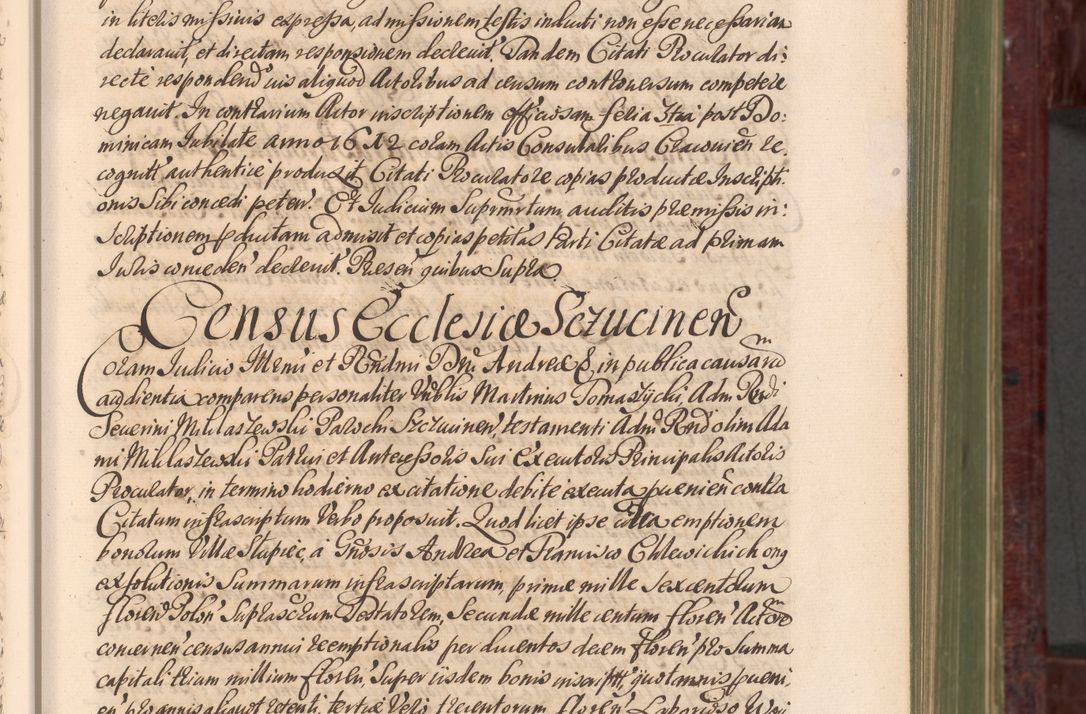 in literis missivis expressa, admissionem testis inducti non esse necessariam
declaravit, et directam responsionem decrevit. Tandem Citati Procurator di:
recte respondend' ius aliquod Actoribus ad censum controversum competere
negavit. In contrarium Actor inscriptionem officiosam feria 3tia post Do:
minicam Jubilate anno 1612 coram Actis Consularibus Cracovien̄ re,
cognit' authentice produxit. Citati Procuratore copias productæ Inscripti:
onis Sibi concedi peten'. Et Judicium Suprmrtum auditis præmissis in:
scriptionem productam admisit et copias petitas Parti Citatæ ad primam
Juris conceden' decrevit. Presen' quibus Supra
Census Ecclesiæ Sczucinen̄
Coram Judicio Illmi et Rndmi Dni Andreæ &, in publica causarum
audientia comparens personaliter Nblis Martinus Tomaszycki, Adm Rndi
Severini Miklaszewski Parochi Szczucinen', testamenti Adm Rnd olim Ada
mi Miklaszewski Patrui et Antecessoris Sui Executoris Principalis Actoris
Procurator, in termino hodierno ex citatione debite executa provenien̄ contra
Citatum infrascriptum Verbo proposuit. Quod licet ipse citra emptionem
bonorum Villæ Slupiec, a Gnosis Andrea et Francisco Chlewickich ong
exsolutionis Summarum infrascriptarum, primæ mille sexcentorum
floren' Polon' Suprascrum Testatorem, Secundæ mille centum floren' Actorem
concernen' census annui reemptionalis per ducentos decem floren' pro Summa
capitali trium millium floren', Super iisdem bonis inscript' quotannis proveni,
en' pro annis aliquot retenti, tertiæ Vero trecentorum floren' Laborioso